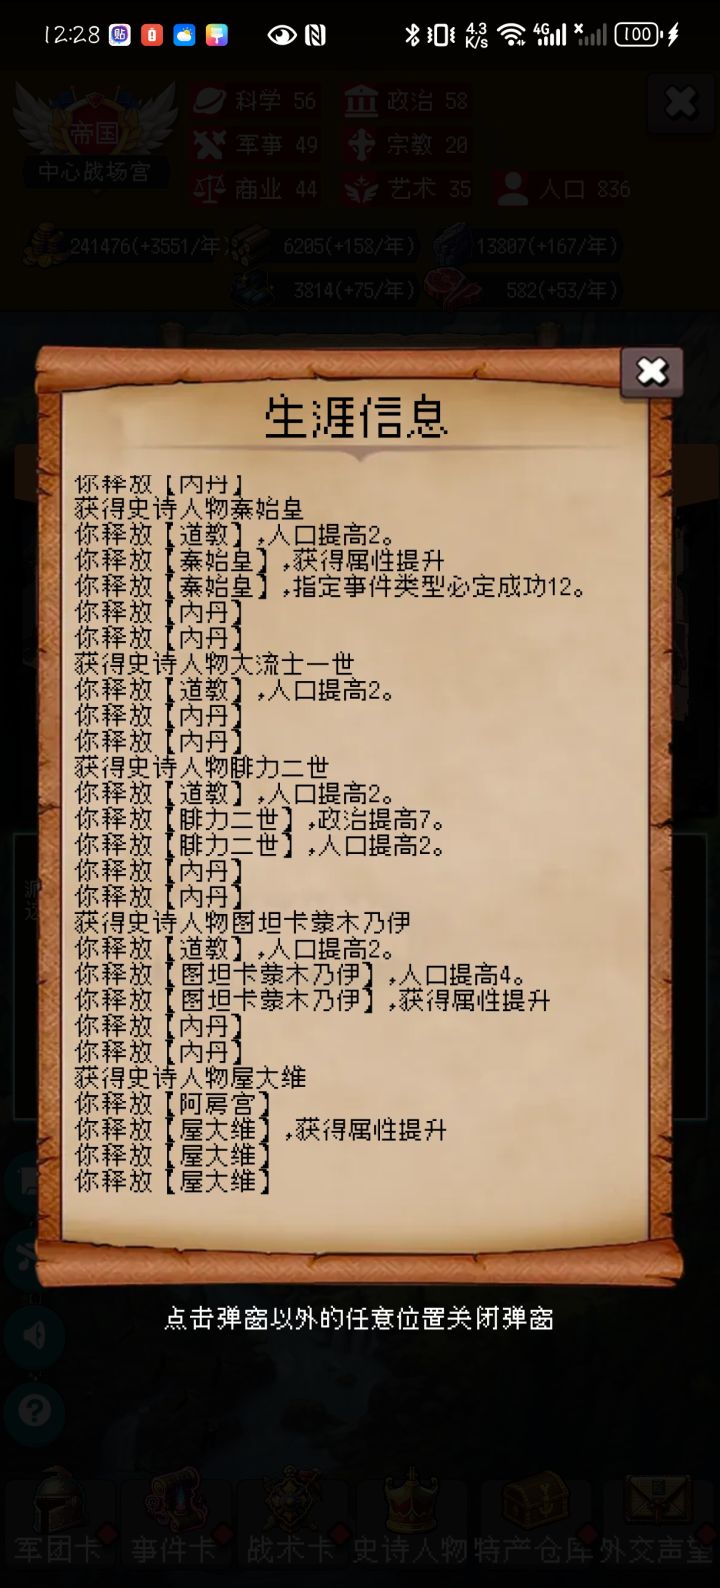 12:28
4.3 K/s
4G
100
帝国
中心战场宫
科学 56
政治 58
军事 49
宗教 20
商业 44
艺术 35
人口 836
241476(+3551/年)
6205(+158/年)
13807(+167/年)
3814(+75/年)
582(+53/年)
生涯信息
你释放【内丹】
获得史诗人物秦始皇
你释放【道教】,人口提高2。
你释放【秦始皇】,获得属性提升
你释放【秦始皇】,指定事件类型必定成功12。
你释放【内丹】
你释放【内丹】
获得史诗人物大流士一世
你释放【道教】,人口提高2。
你释放【内丹】
你释放【内丹】
获得史诗人物腓力二世
你释放【道教】,人口提高2。
你释放【腓力二世】,政治提高7。
你释放【腓力二世】,人口提高2。
你释放【内丹】
你释放【内丹】
获得史诗人物图坦卡蒙木乃伊
你释放【道教】,人口提高2。
你释放【图坦卡蒙木乃伊】,人口提高4。
你释放【图坦卡蒙木乃伊】,获得属性提升
你释放【内丹】
你释放【内丹】
获得史诗人物屋大维
你释放【阿房宫】
你释放【屋大维】,获得属性提升
你释放【屋大维】
你释放【屋大维】
点击弹窗以外的任意位置关闭弹窗
军团卡
事件卡
战术卡
史诗人物
特产仓库
外交声望